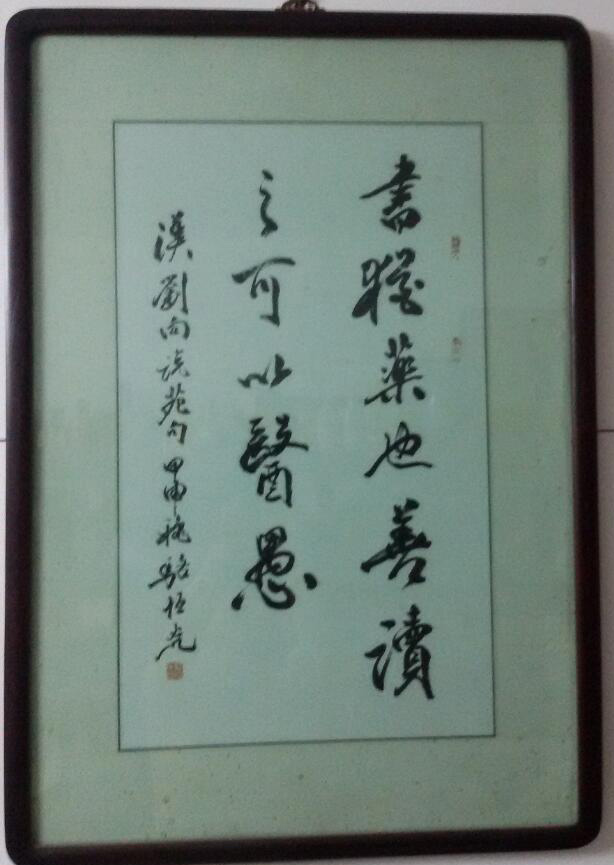 書猶藥也善讀
之可以醫愚
漢劉向說苑句甲申秋駱恒光